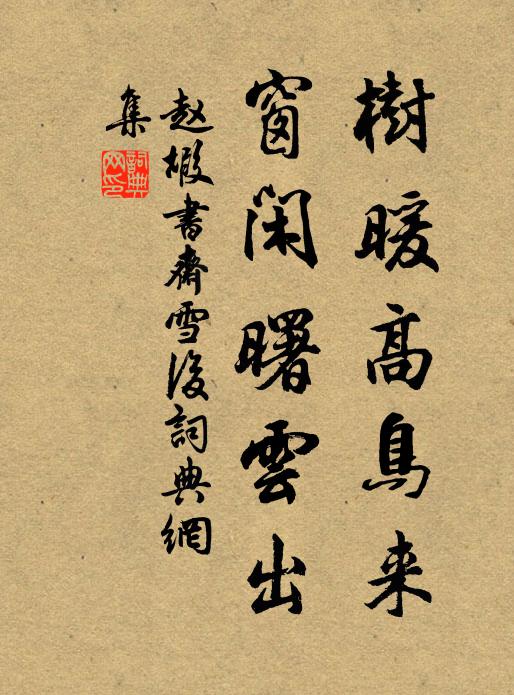 樹暖高鳥来
窗闲曙雲出
赵嘏書齋雪後詞典網
集
詞典网印